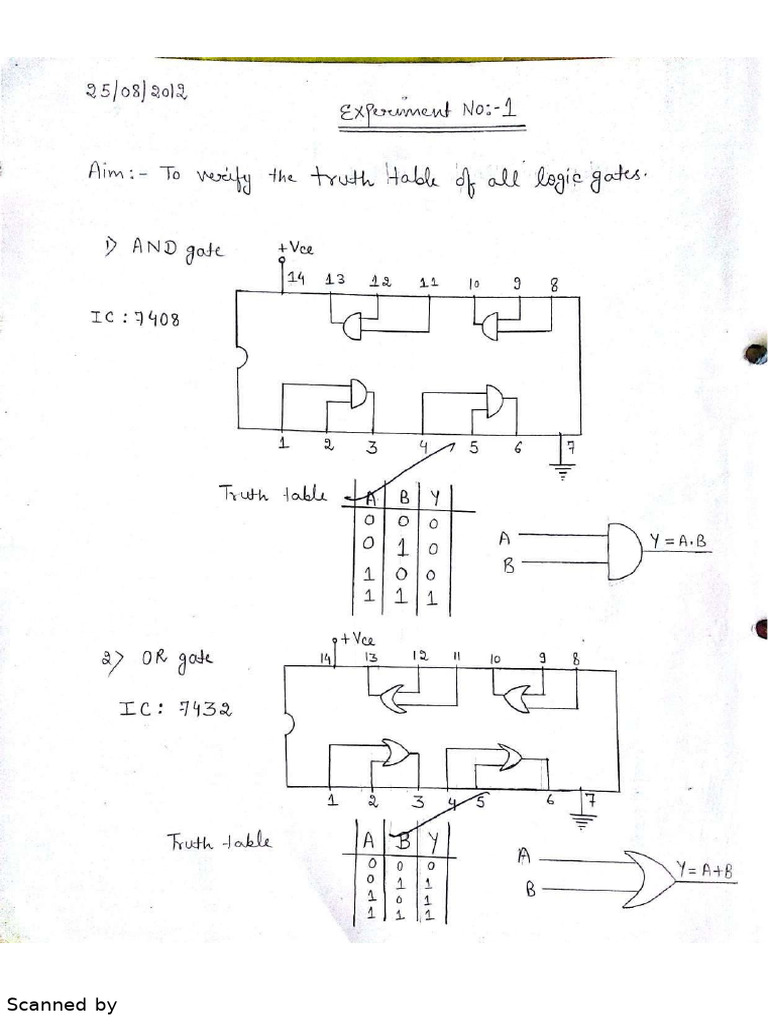 25/08/2012
Experiment No:-1
Aim:- To verify the truth table of all logic gates.
1) AND gate
+Vcc
14 13 12 11 10 9 8
IC : 7408
1 2 3 4 5 6 7
Truth table
A B Y
0 0 0
0 1 0
1 0 0
1 1 1
A
B
Y = A.B
2) OR gate
+Vcc
14 13 12 11 10 9 8
IC : 7432
1 2 3 4 5 6 7
Truth table
A B Y
0 0 0
0 1 1
1 0 1
1 1 1
A
B
Y = A+B
Scanned by